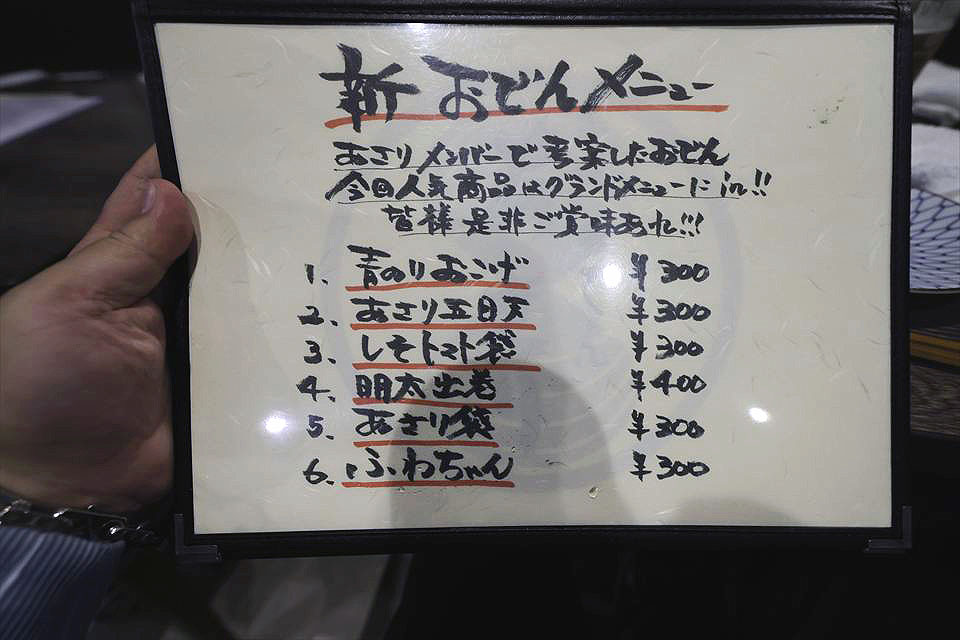 新おでんメニュー
あさりメンバーで考案したおでん
今回人気商品はグランドメニューにin!!
皆様是非ご賞味あれ!!!
1. 青のりおこげ ¥300
2. あさり五目天 ¥300
3. しそトマト袋 ¥300
4. 明太出巻 ¥400
5. あさり袋 ¥300
6. ふわちゃん ¥300